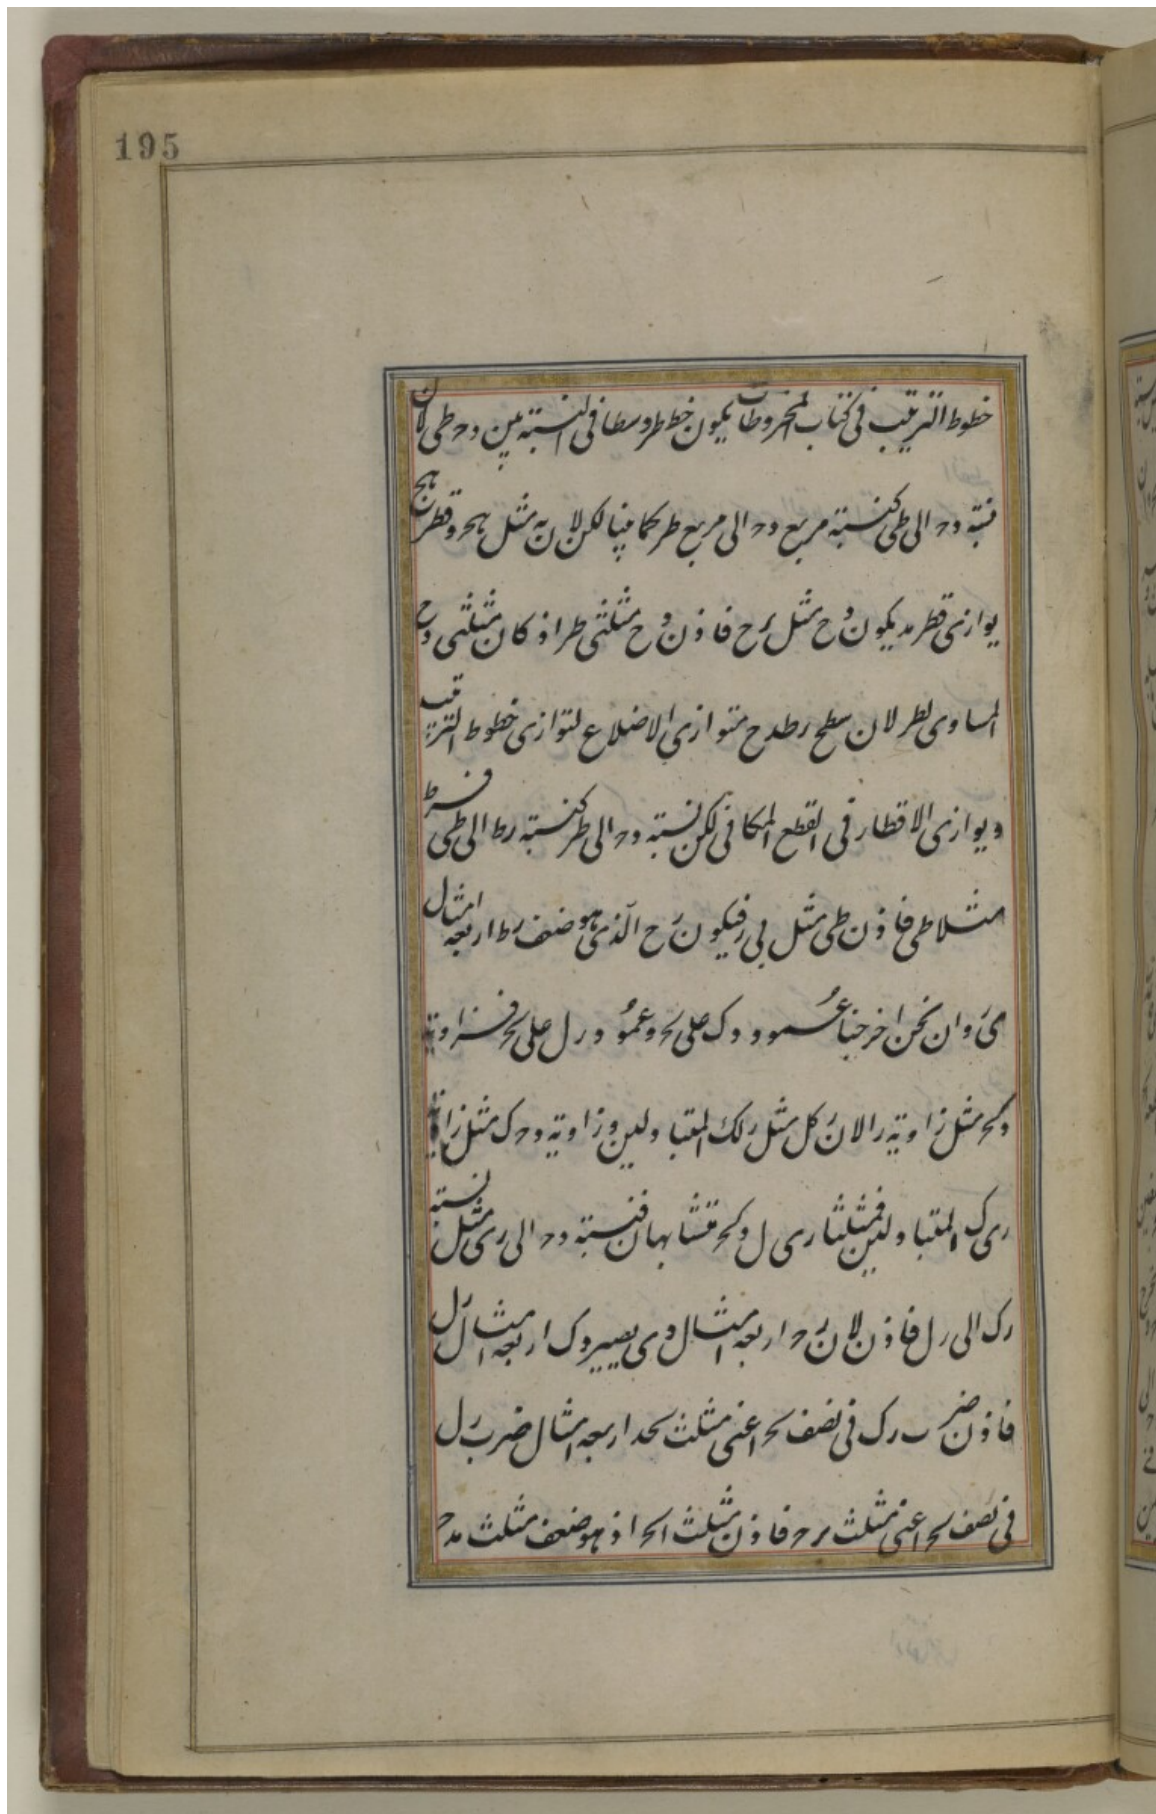 195
خطوط الترتيب فى كتاب المخروطات يكون خط طر وسطا فى النسبة بين وح طى لان
نسبة وح الى طى كنسبة مربع وح الى مربع طر كما بينا لكن لان به مثل هج وقطر هج
يوازى قطر مد يكون وح مثل رح فاذن وح مثلثى طر اذ كان مثلثى وح
المساوى لطر لان سطح رطدح متوازى الاضلاع لتوازى خطوط الترتيب
ويوازى الاقطار فى القطع المكافى لكن نسبة وح الى طر كنسبة رط الى طى فرط
مثلا طى فاذن طى مثل يى ر فيكون رح الذى هو ضعف رط اربعة امثال
ى ر وان نحن اخرجنا عمود وك على لح وعمود ر ل على لح فزاوية
وكح مثل زاوية ر الان ر كل مثل رلك المتبادلين وزاوية وح ك مثل زاوية
رى ك المتبادلين فمثلثا رى ل وكح متشابهان فنسبة وح الى رى مثل نسبة
رك الى رل فاذن لان رح اربعة امثال وى يصير وك اربعة امثال رل
فاذن ضرب رك فى نصف لح اعنى مثلث لحد اربعة امثال ضرب رل
فى نصف لح اعنى مثلث رح فاذن مثلث الح اذ هو ضعف مثلث مدح